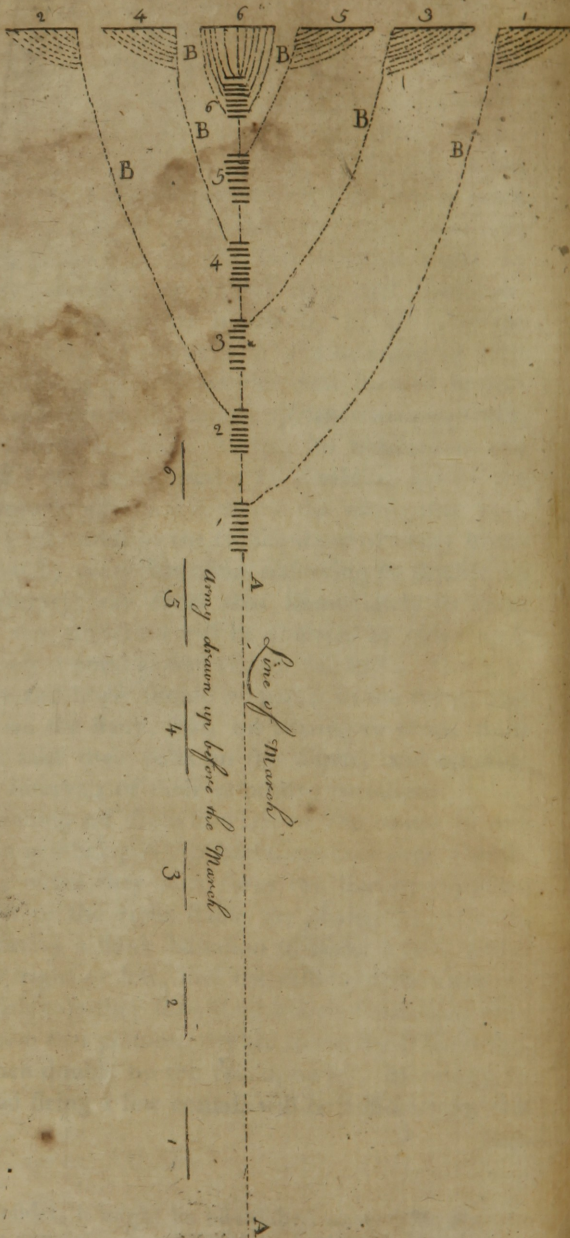 2 4 6 5 3 1
B B
B B
B B
6
5
4
3
2
1
A
Line of March
Army drawn up before the March
6
5
4
3
2
1
A